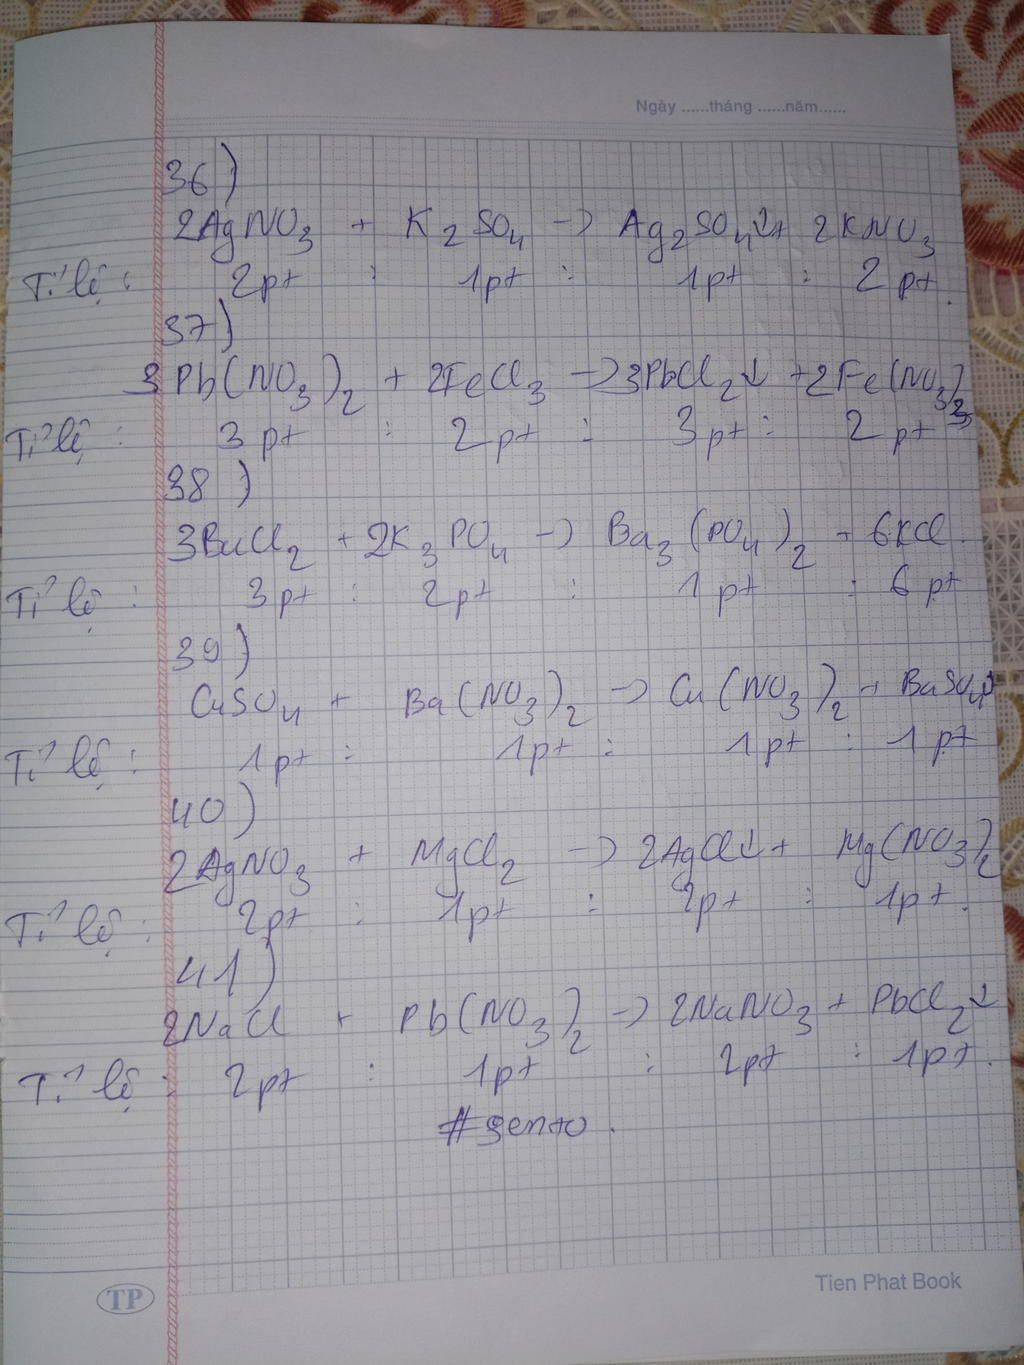 Ngày ......tháng ......năm......
36)
2AgNO3 + K2SO4 → Ag2SO4↓ + 2KNO3
Tỉ lệ : 2pt : 1pt : 1pt : 2pt.
37)
3Pb(NO3)2 + 2FeCl3 → 3PbCl2↓ + 2Fe(NO3)3
Tỉ lệ : 3pt : 2pt : 3pt : 2pt
38)
3BaCl2 + 2K3PO4 → Ba3(PO4)2 + 6KCl.
Tỉ lệ : 3pt : 2pt : 1pt : 6pt
39)
CuSO4 + Ba(NO3)2 → Cu(NO3)2 + BaSO4↓
Tỉ lệ : 1pt : 1pt : 1pt : 1pt
40)
2AgNO3 + MgCl2 → 2AgCl↓ + Mg(NO3)2
Tỉ lệ : 2pt : 1pt : 2pt : 1pt.
41)
2NaCl + Pb(NO3)2 → 2NaNO3 + PbCl2↓
Tỉ lệ : 2pt : 1pt : 2pt : 1pt.
#gento.
TP
Tien Phat Book